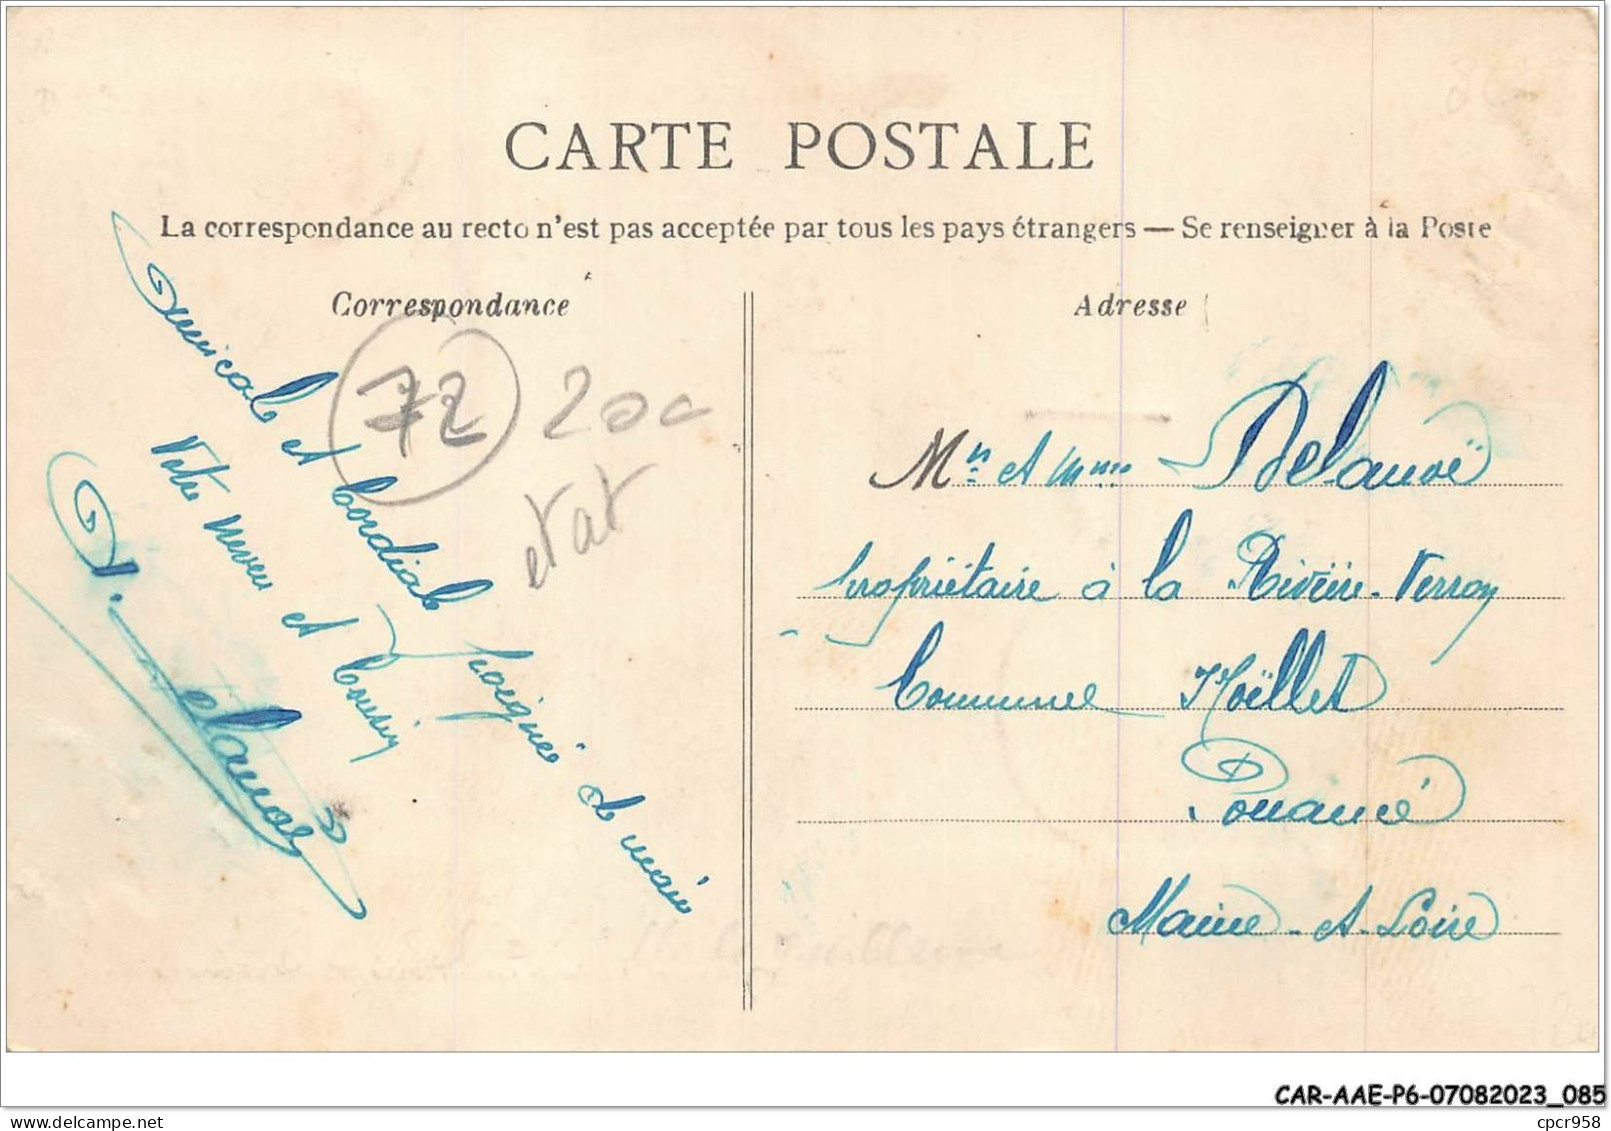 CARTE POSTALE
La correspondance au recto n'est pas acceptée par tous les pays étrangers — Se renseigner à la Poste
Correspondance
Adresse
72
200
etat
Amicale et Cordiale poignée de main
Votre neveu et Cousin
Delanoë
Mr et Mme Delanoë
propriétaire à la Rivière-Verron
Commune Noëllet
Pouancé
Maine-et-Loire
CAR-AAE-P6-07082023_085
cpcr958